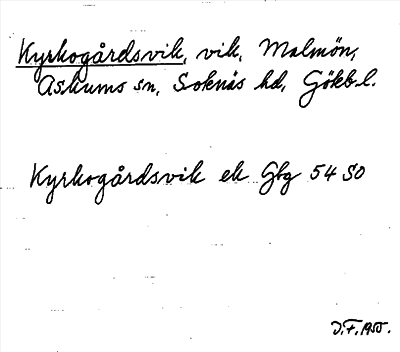 Kyrkogårdsvik, vik, Malmön,
Askums sn, Sotenäs hd, Götkb.l.
Kyrkogårdsvik ek Gbg 54 SO
D.F. 1955.